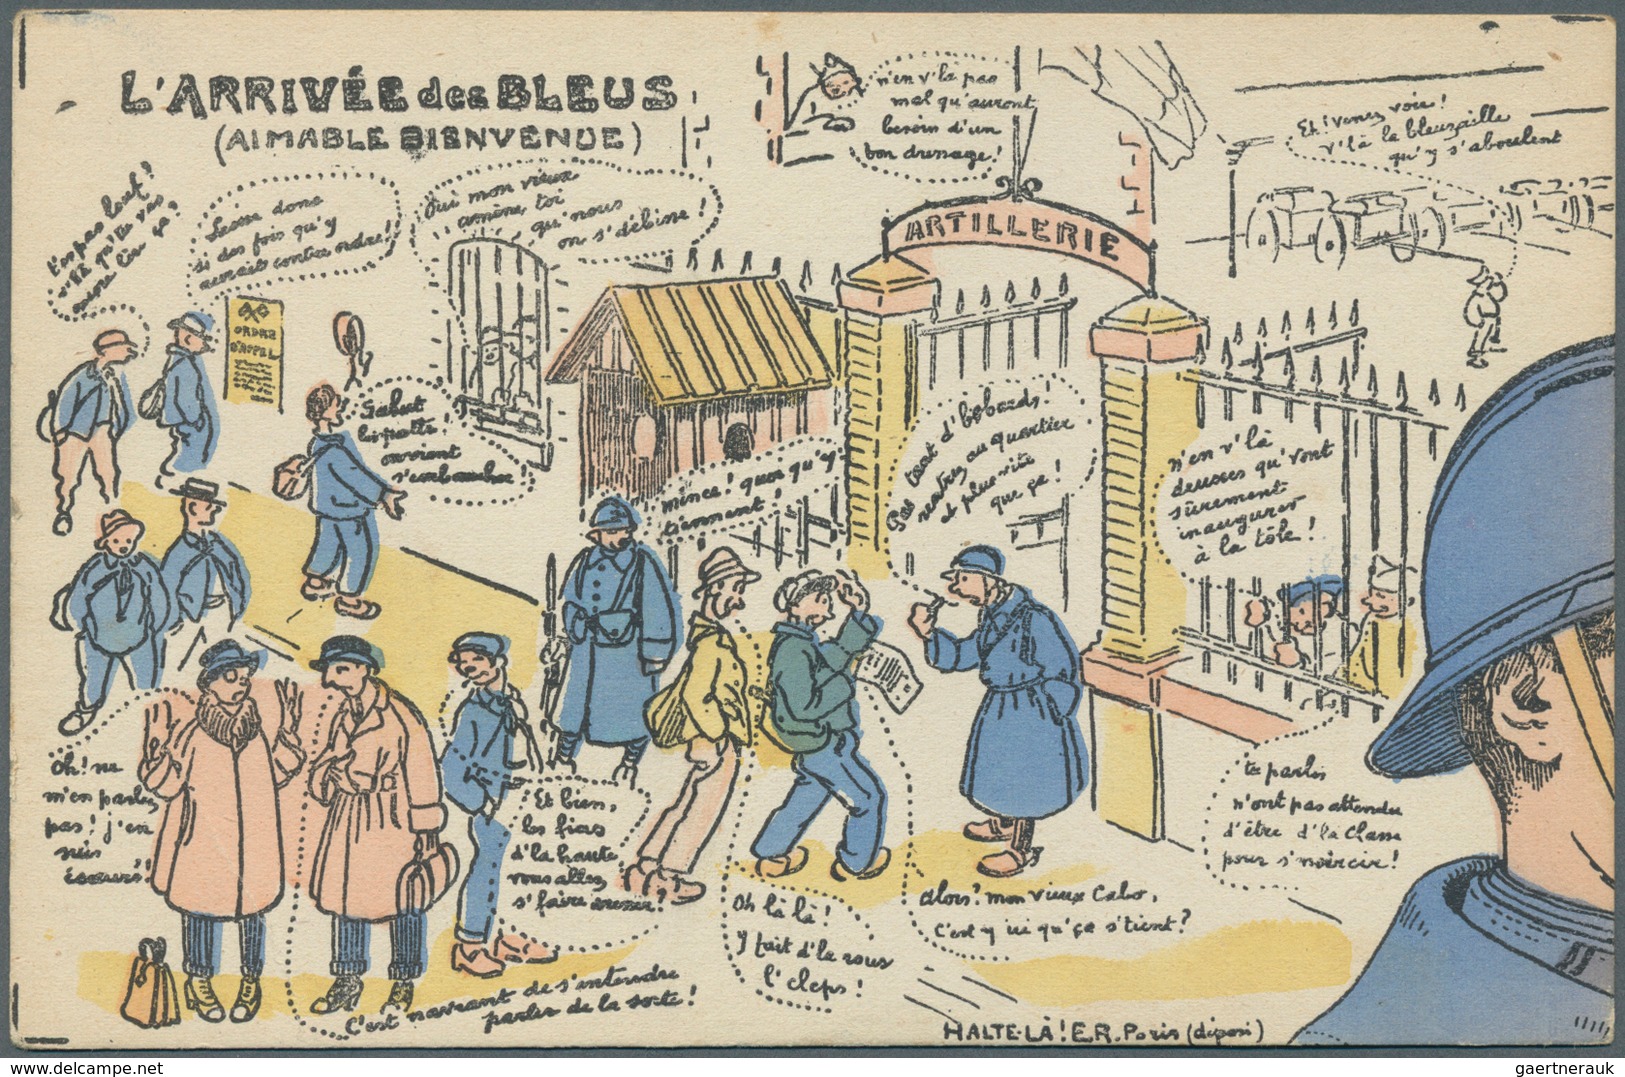 L'ARRIVÉE des BLEUS
(AIMABLE BIENVENUE)
n'en v'là pas
mal qu'auront
besoin d'un
bon dressage!
Eh! venez voir!
v'là la bleusaille
qu'y s'aboulent
T'en pas
v'là qu'tu vas
encore
donc
si des fois qu'y
aurait contre ordre!
Oui mon vieux
amène, toi
qu'nous
on s'débine!
ARTILLERIE
ORDRE
D'APPEL
Salut
les potes!
on vient
s'embaucher!
mince! quoi qu'y
tiennent!
Pas tant d'bobards!
rentrez au quartier
et plus vite
que ça!
n'en v'là
deusses qu'vont
sûrement
inaugurer
à la tôle!
Oh! ne
m'en parlez
pas! j'en
suis
écœuré!
Et bien,
les fieus
d'la haute
vous allez
s'faire dresser?
C'est navrant de s'entendre
parler de la sorte!
Oh là là!
Y fait d'la rous
l'cleps!
Alors? mon vieux Cabo,
C'est y ici qu'ça s'tient?
tu parles
n'ont pas attendu
d'être d'la classe
pour s'noircir!
HALTE-LÀ! E.R. Paris (déposé)
gaertnerauk